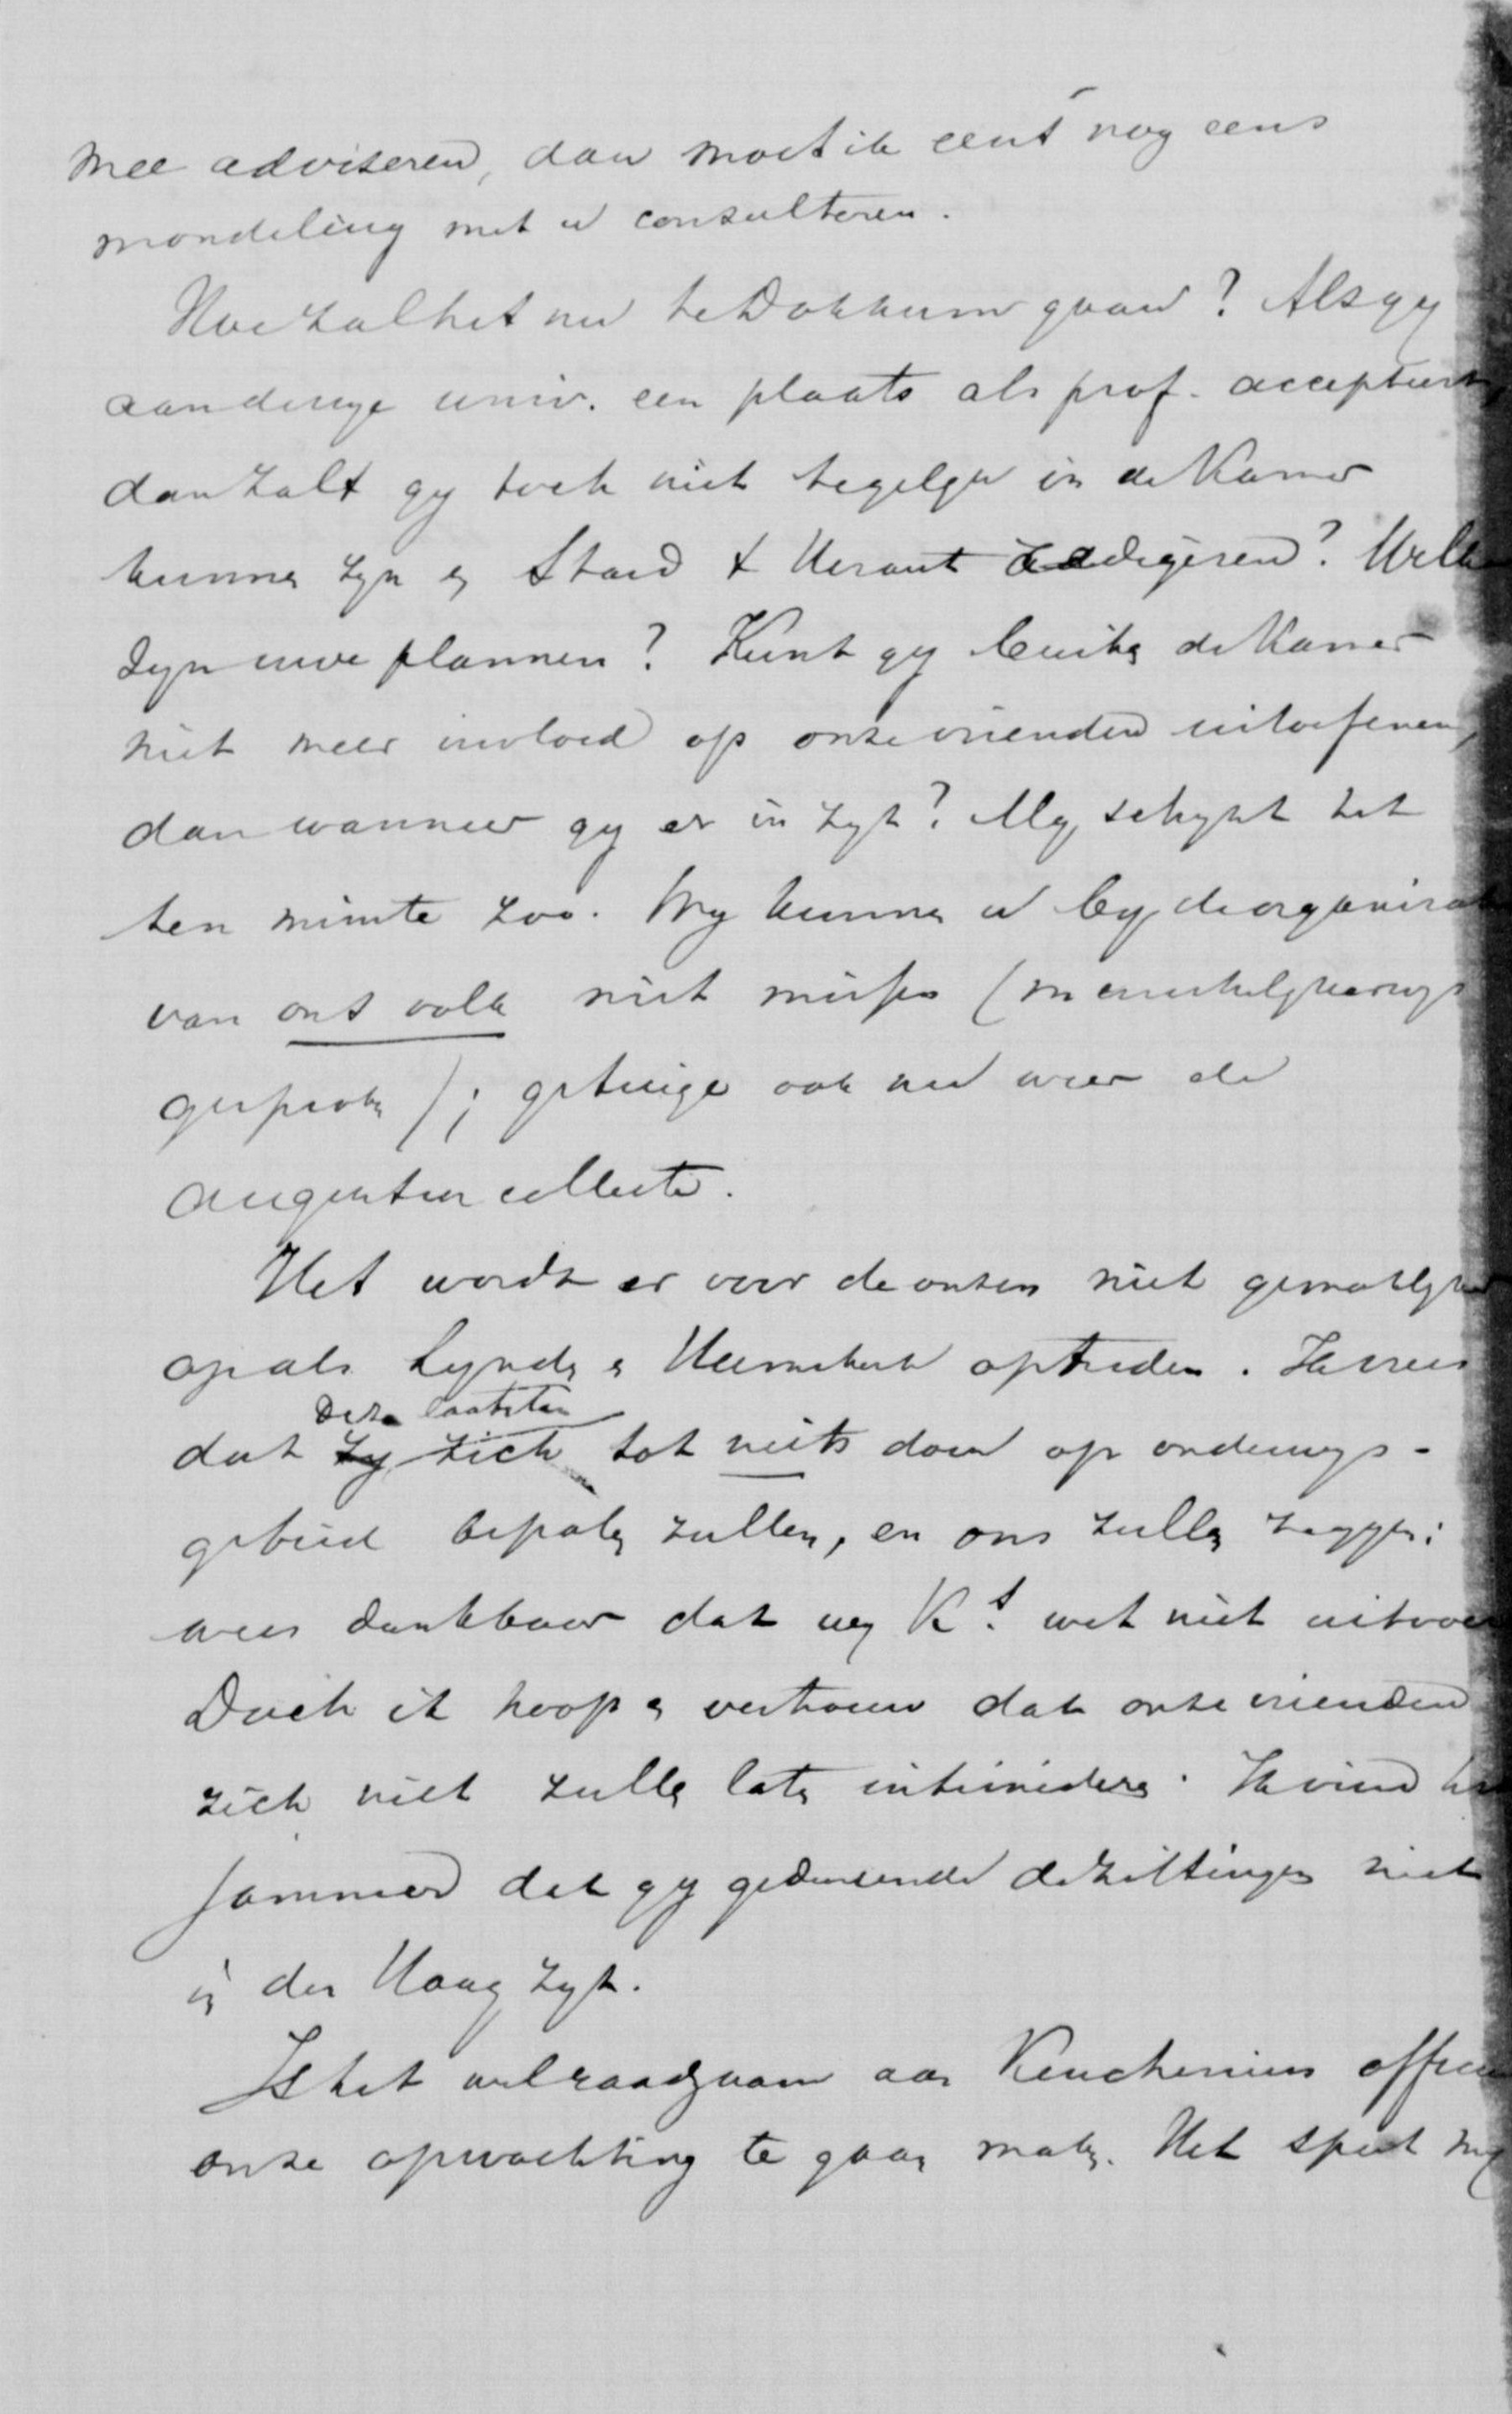 mee adviseren, dan moet ik eerst nog eens
mondeling met u consulteren.
Hoe zal het nu te Dokkum gaan? Als gy
aan de vrye univ. een plaats als prof. accepteert,
dan zult gy toch niet tegelyk in de Kamer
kunnen zyn en Stand & Heraut redigeren? Welke
zyn uwe plannen? Kunt gy buiten de Kamer
niet meer invloed op onze vrienden uitoefenen,
dan wanneer gy er in zyt? My schynt het
ten minste zoo. Wy kunnen u by de organisatie
van ons volk niet missen (menschelykerwys
gesproken); getuige ook nu weer de
augustus collecte.
Het wordt er voor de onzen niet gemaklyker
op als Lynden en Heemskerk optreden. Ik vrees
dat deze laatsten zich tot niets doen op onderwys-
gebied bepalen zullen, en ons zullen zeggen:
wees dankbaar dat wy K's wet niet uitvoeren
Doch ik hoop en vertrouw dat onze vrienden
zich niet zullen laten intimideren. Ik vind het
jammer dat gy gedurende de zittingen niet
in den Haag zyt.
Is het wel raadzaam aan Keuchenius
onze opwachting te gaan maken. Het spyt my